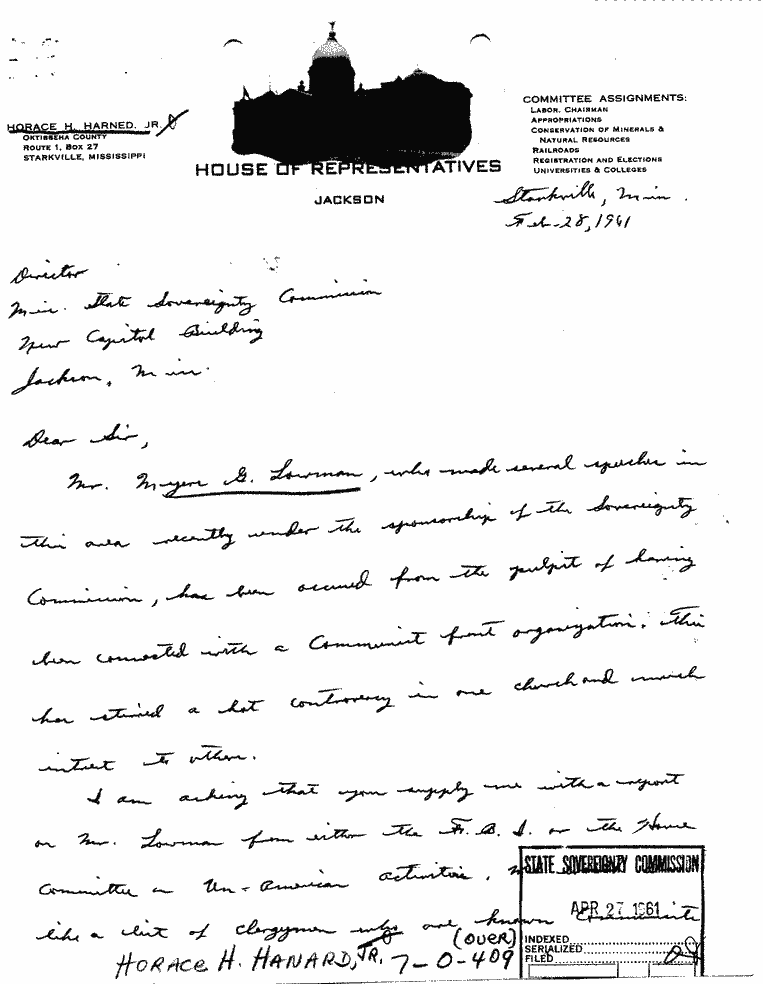 HORACE H. HARNED, JR.
OKTIBBEHA COUNTY
ROUTE 1, BOX 27
STARKVILLE, MISSISSIPPI
HOUSE OF REPRESENTATIVES
JACKSON
COMMITTEE ASSIGNMENTS:
LABOR, CHAIRMAN
APPROPRIATIONS
CONSERVATION OF MINERALS &
NATURAL RESOURCES
RAILROADS
REGISTRATION AND ELECTIONS
UNIVERSITIES & COLLEGES
Starkville, Miss.
Feb-28, 1961
Director
Miss. State Sovereignty Commission
New Capitol Building
Jackson, Miss.
Dear Sir,
Mr. Myers G. Lowman, who made several speeches in
this area recently under the sponsorship of the Sovereignty
Commission, has been accused from the pulpit of having
been connected with a Communist front organization. This
has stirred a hot controversy in one church and much
interest to others.
I am asking that you supply me with a report
on Mr. Lowman from either the F. B. I. or the House
Committee on Un-American activities.
like a list of clergymen who are known Communists
(OVER)
HORACE H. HANARD, JR. 7-0-409
STATE SOVEREIGNTY COMMISSION
APR 27 1961
INDEXED
SERIALIZED
FILED